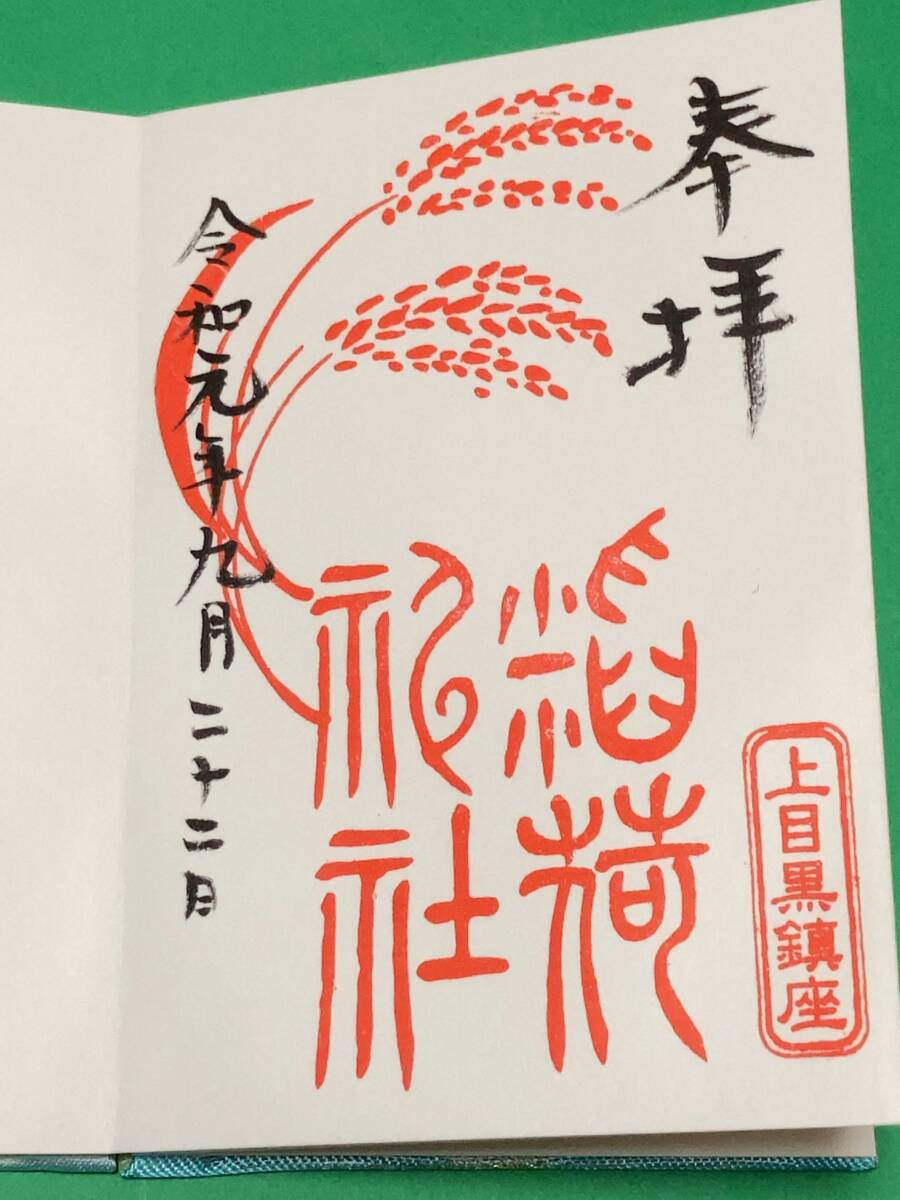 奉拝
上目黒鎮座
稲荷
神社
令和元年九月二十二日